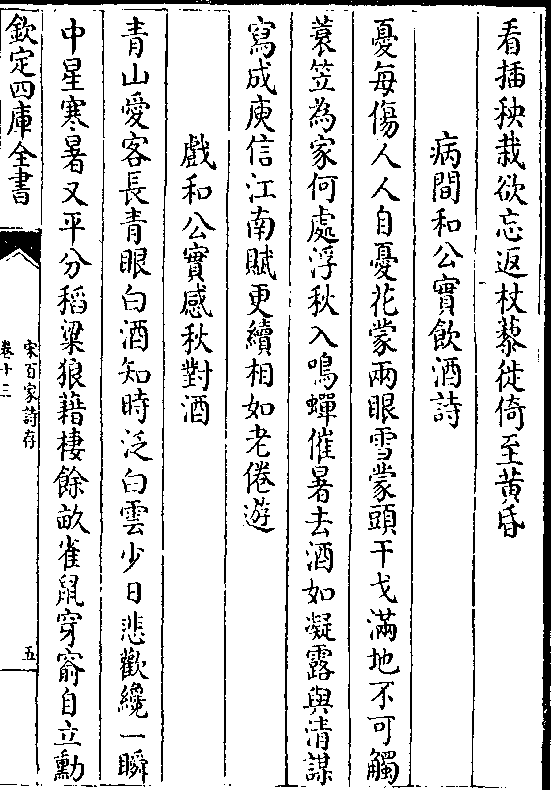 看插秧栽欲忘返杖藜徙倚至黄昏
病間和公實飲酒詩
憂每傷人人自憂花蒙兩眼雪蒙頭干戈滿地不可觸
蓑笠為家何處浮秋入鳴蟬催暑去酒如凝露與清謀
寫成庾信江南賦更續相如老倦遊
戲和公實感秋對酒
青山愛客長青眼白酒知時泛白雲少日悲歡纔一瞬
中星寒暑又平分稻粱狼藉棲餘畝雀鼠穿窬自立勳
欽定四庫全書
宋百家詩存
卷十三
五